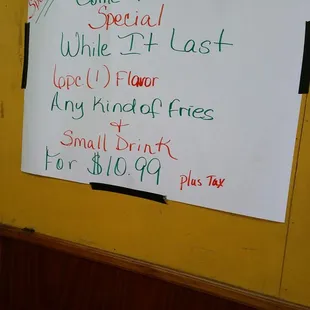 Special
While It Last
6pc (1) Flavor
Any Kind of Fries
+
Small Drink
For $10.99 plus Tax